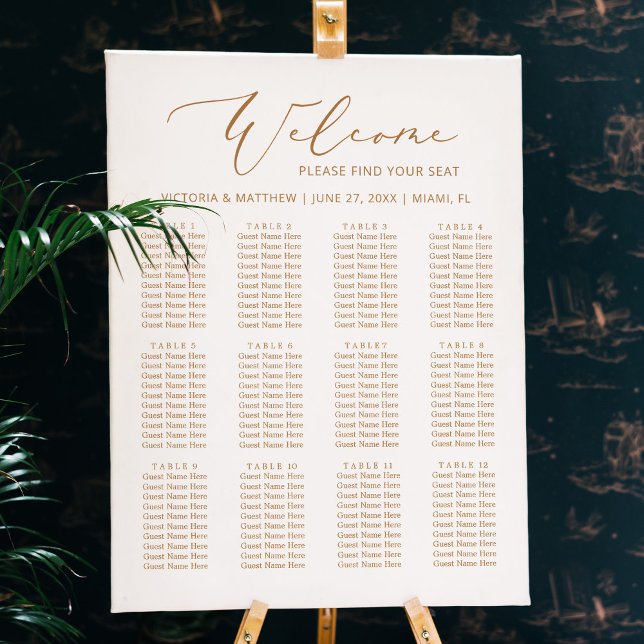 Welcome
PLEASE FIND YOUR SEAT
VICTORIA & MATTHEW | JUNE 27, 20XX | MIAMI, FL
TABLE 1
Guest Name Here
Guest Name Here
Guest Name Here
Guest Name Here
Guest Name Here
Guest Name Here
Guest Name Here
Guest Name Here
Guest Name Here
Guest Name Here
TABLE 2
Guest Name Here
Guest Name Here
Guest Name Here
Guest Name Here
Guest Name Here
Guest Name Here
Guest Name Here
Guest Name Here
Guest Name Here
Guest Name Here
TABLE 3
Guest Name Here
Guest Name Here
Guest Name Here
Guest Name Here
Guest Name Here
Guest Name Here
Guest Name Here
Guest Name Here
Guest Name Here
Guest Name Here
TABLE 4
Guest Name Here
Guest Name Here
Guest Name Here
Guest Name Here
Guest Name Here
Guest Name Here
Guest Name Here
Guest Name Here
Guest Name Here
Guest Name Here
TABLE 5
Guest Name Here
Guest Name Here
Guest Name Here
Guest Name Here
Guest Name Here
Guest Name Here
Guest Name Here
Guest Name Here
Guest Name Here
Guest Name Here
TABLE 6
Guest Name Here
Guest Name Here
Guest Name Here
Guest Name Here
Guest Name Here
Guest Name Here
Guest Name Here
Guest Name Here
Guest Name Here
Guest Name Here
TABLE7
Guest Name Here
Guest Name Here
Guest Name Here
Guest Name Here
Guest Name Here
Guest Name Here
Guest Name Here
Guest Name Here
Guest Name Here
Guest Name Here
TABLE 8
Guest Name Here
Guest Name Here
Guest Name Here
Guest Name Here
Guest Name Here
Guest Name Here
Guest Name Here
Guest Name Here
Guest Name Here
Guest Name Here
TABLE 9
Guest Name Here
Guest Name Here
Guest Name Here
Guest Name Here
Guest Name Here
Guest Name Here
Guest Name Here
Guest Name Here
Guest Name Here
Guest Name Here
TABLE 10
Guest Name Here
Guest Name Here
Guest Name Here
Guest Name Here
Guest Name Here
Guest Name Here
Guest Name Here
Guest Name Here
Guest Name Here
Guest Name Here
TABLE 11
Guest Name Here
Guest Name Here
Guest Name Here
Guest Name Here
Guest Name Here
Guest Name Here
Guest Name Here
Guest Name Here
Guest Name Here
Guest Name Here
TABLE 12
Guest Name Here
Guest Name Here
Guest Name Here
Guest Name Here
Guest Name Here
Guest Name Here
Guest Name Here
Guest Name Here
Guest Name Here
Guest Name Here